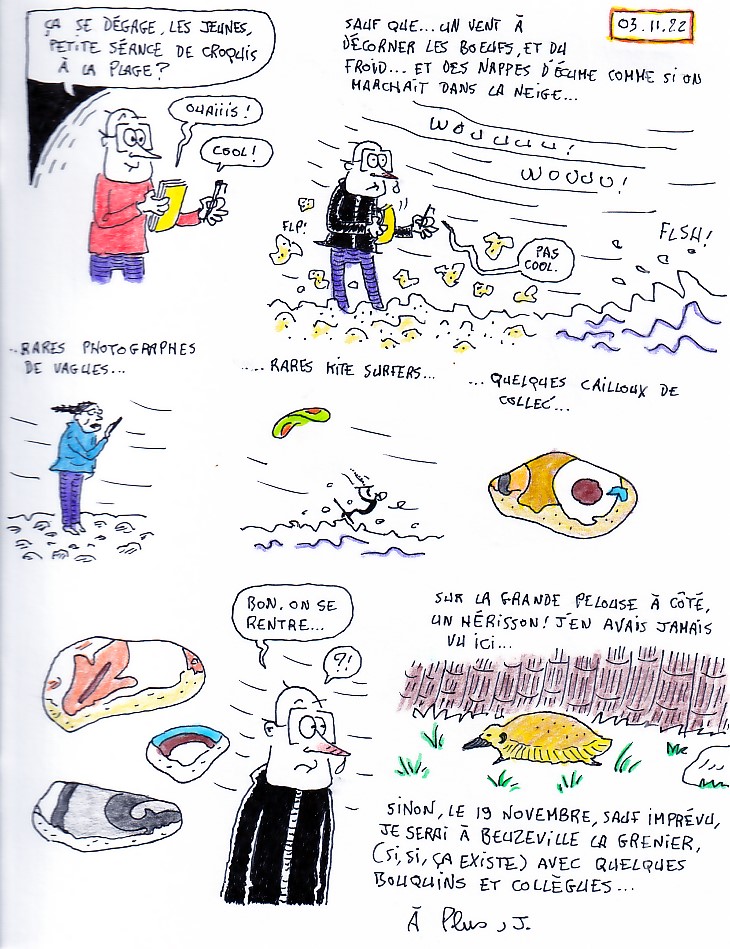 ÇA SE DÉGAGE, LES JEUNES,
PETITE SÉANCE DE CROQUIS
À LA PLAGE?
OUAIIIS!
COOL!
SAUF QUE... UN VENT À
DÉCORNER LES BOEUFS, ET DU
FROID... ET DES NAPPES D'ÉCUME COMME SI ON
MARCHAIT DANS LA NEIGE...
03.11.22
WOUUUU!
WOUUU!
FLP!
PAS
COOL.
FLSH!
...RARES PHOTOGRAPHES
DE VAGUES...
.... RARES KITE SURFERS...
... QUELQUES CAILLOUX DE
COLLEC...
BON. ON SE
RENTRE...
?!
SUR LA GRANDE PELOUSE À CÔTÉ,
UN HÉRISSON! J'EN AVAIS JAMAIS
VU ICI...
SINON, LE 19 NOVEMBRE, SAUF IMPRÉVU,
JE SERAI À BEUZEVILLE LA GRENIER,
(SI, SI, ÇA EXISTE) AVEC QUELQUES
BOUQUINS ET COLLÈGUES...
À Plus, J.